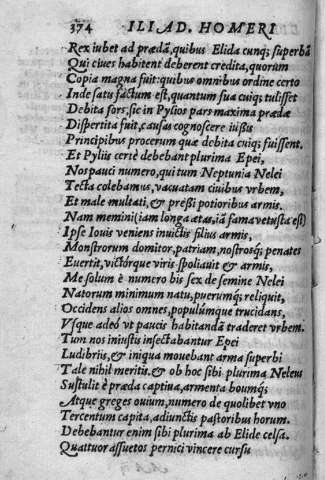 374 ILIAD. HOMERI
Rex iubet ad prædã, quibus Elida cunq; superbã
Qui ciues habitent deberent credita, quorum
Copia magna fuit: quibus omnibus ordine certo
Inde satu factum est, quantum sua cuiq; tulisset
Debita fors, sic in Pylios pars maxima prædæ
Dispertita fuit, causas cognoscere iussus
Principibus procerum quæ debita cuiq; fuissent.
Et Pyliis certè debebant plurima Epei,
Nos pauci numero, qui tum Neptunia Nelei
Tecta colebamus, vacuatam ciuibus vrbem,
Et male multati, & pressi potioribus armis.
Nam memini (iam longa ætas, iã fama vetusta est)
Ipse Iouis veniens inuictis filius armis,
Monstrorum domitor, patriam, nostrosq; penates
Euertit, victórque viris spoliauit & armis,
Me solum è numero bis sex de semine Nelei
Natorum minimum natu, puerumq; reliquit,
Occidens alios omnes, populúmque trucidans,
Vsque adeò vt paucis habitandã traderet vrbem.
Tum nos iniustis insectabantur Epei
Ludibriis, & iniqua mouebant arma superbi
Tale nihil meritis. & ob hoc sibi plurima Neleus
Sustulit è præda captiua, armenta boumq;
Atque greges ouium, numero de quolibet vno
Tercentum capita, adiunctis pastoribus horum.
Debebantur enim sibi plurima ab Elide celsa.
Quattuor assuetos pernici vincere cursu